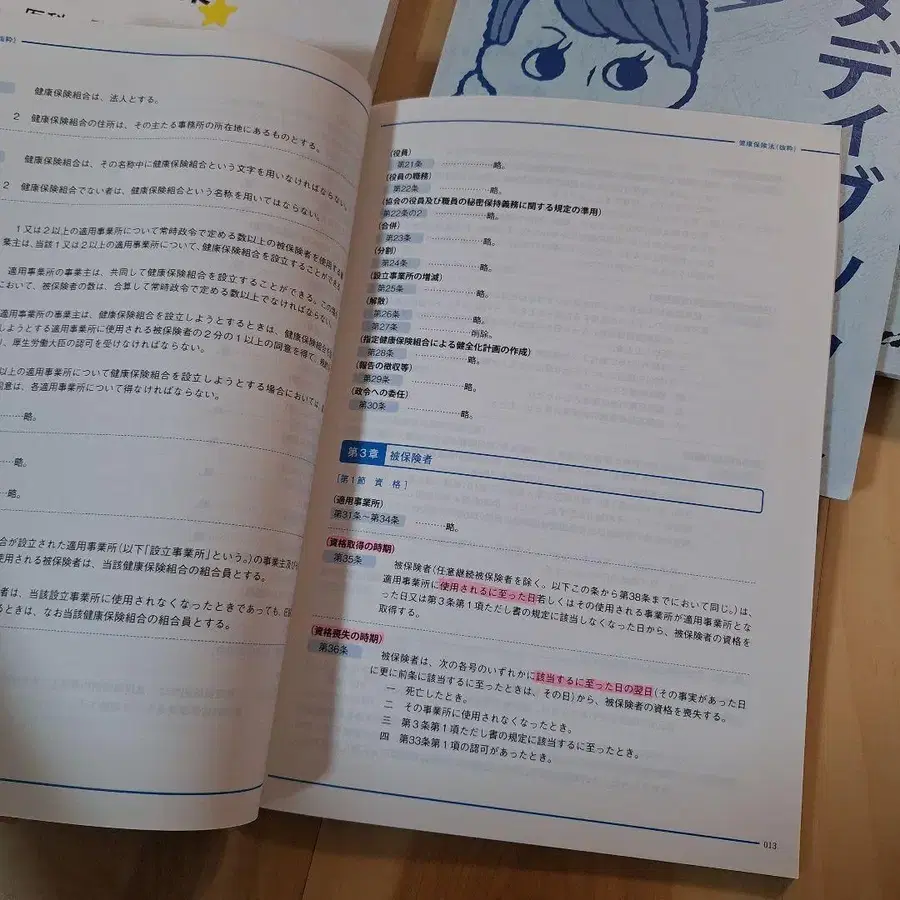 健康保険組合は、法人とする。
2 健康保険組合の住所は、その主たる事務所の所在地にあるものとする。
健康保険組合は、その名称中に健康保険組合という文字を用いなければならない。
2 健康保険組合でない者は、健康保険組合という名称を用いてはならない。
1又は2以上の適用事業所について常時政令で定める数以上の被保険者を使用する
業主は、当該1又は2以上の適用事業所について、健康保険組合を設立することができる
適用事業所の事業主は、共同して健康保険組合を設立することができる。この
において、被保険者の数は、合算して常時政令で定める数以上でなければならない。
適用事業所の事業主は、健康保険組合を設立しようとするときは、健康保険組合を
しようとする適用事業所に使用される被保険者の2分の1以上の同意を得て、
、厚生労働大臣の認可を受けなければならない。
以上の適用事業所について健康保険組合を設立しようとする場合においては、
同意は、各適用事業所について得なければならない。
……略。
……略。
……略。
合が設立された適用事業所(以下「設立事業所」という。)の事業主及び
使用される被保険者は、当該健康保険組合の組合員とする。
者は、当該設立事業所に使用されなくなったときであっても、
るときは、なお当該健康保険組合の組合員とする。
健康保険法(抜粋)
(役員)
第21条 ………………略。
(役員の職務)
第22条 ………………略。
(協会の役員及び職員の秘密保持義務に関する規定の準用)
第22条の2 ………………略。
(合併)
第23条 ………………略。
(分割)
第24条 ………………略。
(設立事業所の増減)
第25条 ………………略。
(解散)
第26条 ………………略。
第27条 ………………削除。
(指定健康保険組合による健全化計画の作成)
第28条 ………………略。
(報告の徴収等)
第29条 ………………略。
(政令への委任)
第30条 ………………略。
第3章 被保険者
[第1節 資 格]
(適用事業所)
第31条～第34条 ………略。
(資格取得の時期)
第35条 被保険者(任意継続被保険者を除く。以下この条から第38条までにおいて同じ。)は、
適用事業所に使用されるに至った日若しくはその使用される事業所が適用事業所とな
った日又は第3条第1項ただし書の規定に該当しなくなった日から、被保険者の資格を
取得する。
(資格喪失の時期)
第36条 被保険者は、次の各号のいずれかに該当するに至った日の翌日(その事実があった日
に更に前条に該当するに至ったときは、その日)から、被保険者の資格を喪失する。
一 死亡したとき。
二 その事業所に使用されなくなったとき。
三 第3条第1項ただし書の規定に該当するに至ったとき。
四 第33条第1項の認可があったとき。
013